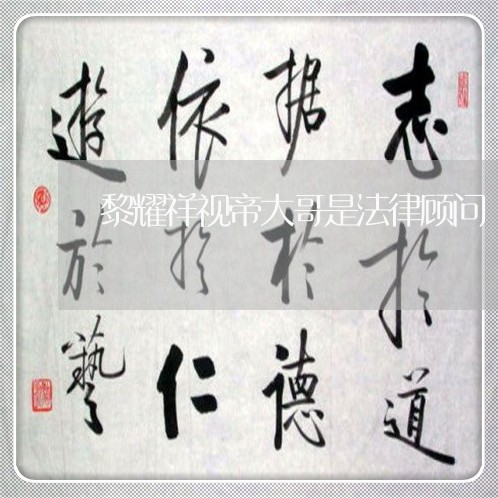 志於道
据於德
依於仁
遊於藝
黎耀祥视帝大哥是法律顾问